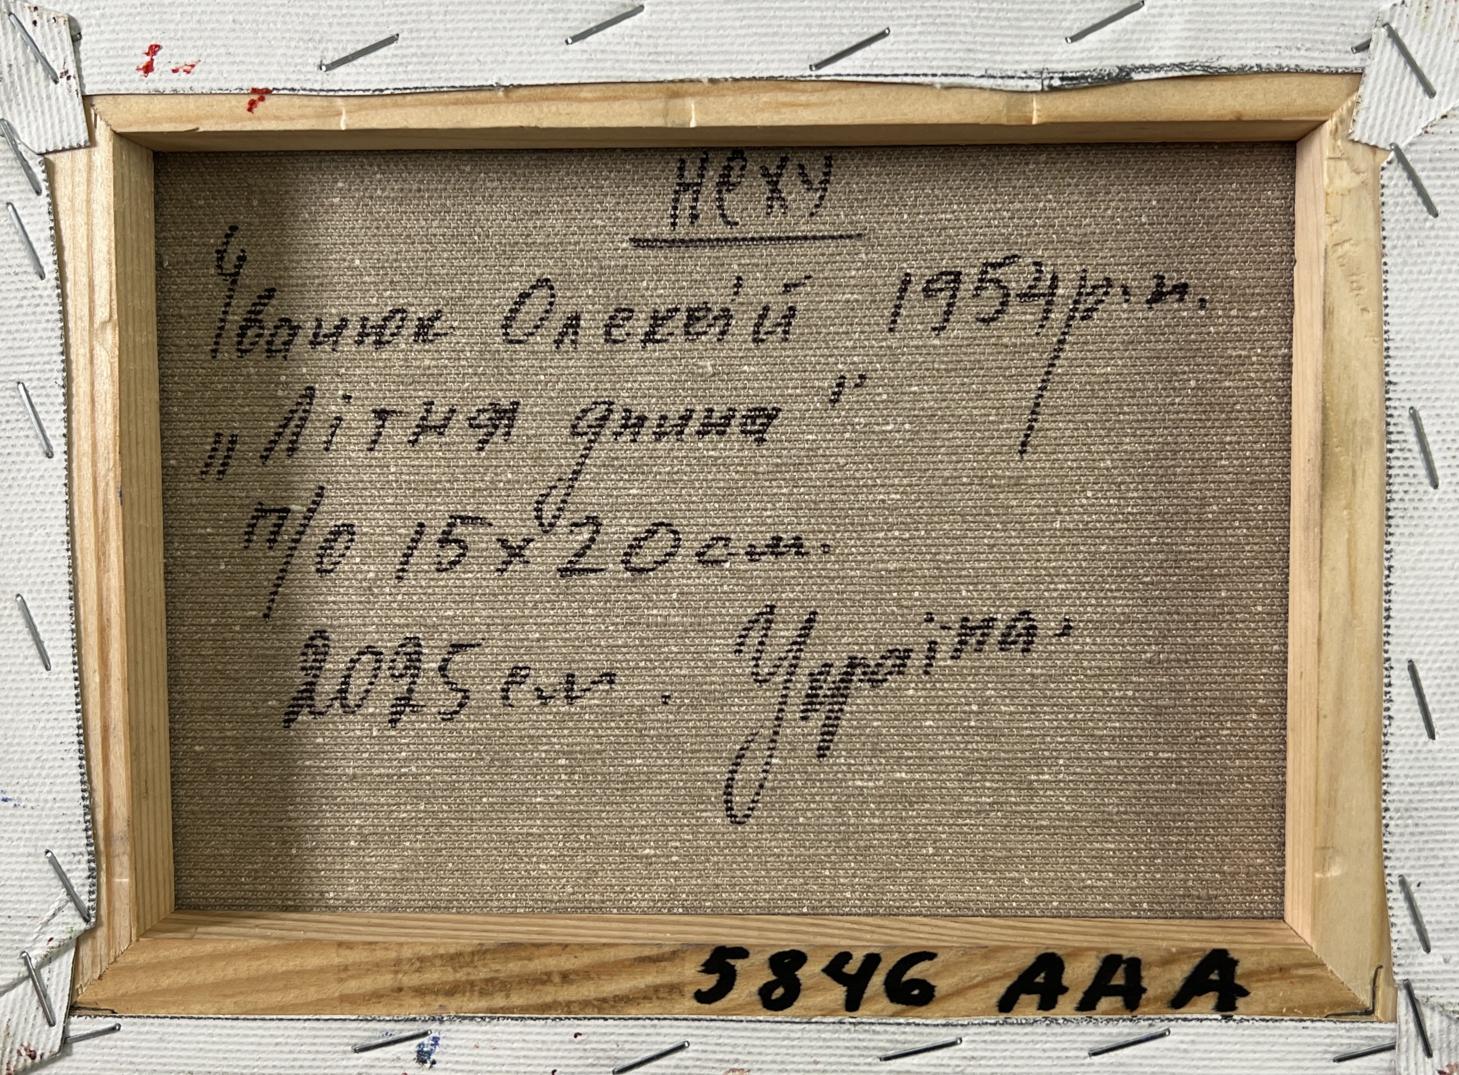 НСХУ
Іванюк Олексій 1954 р.н.
„Літня днина"
п/о 15х20 см.
2025 см. Україна.
5846 ААА